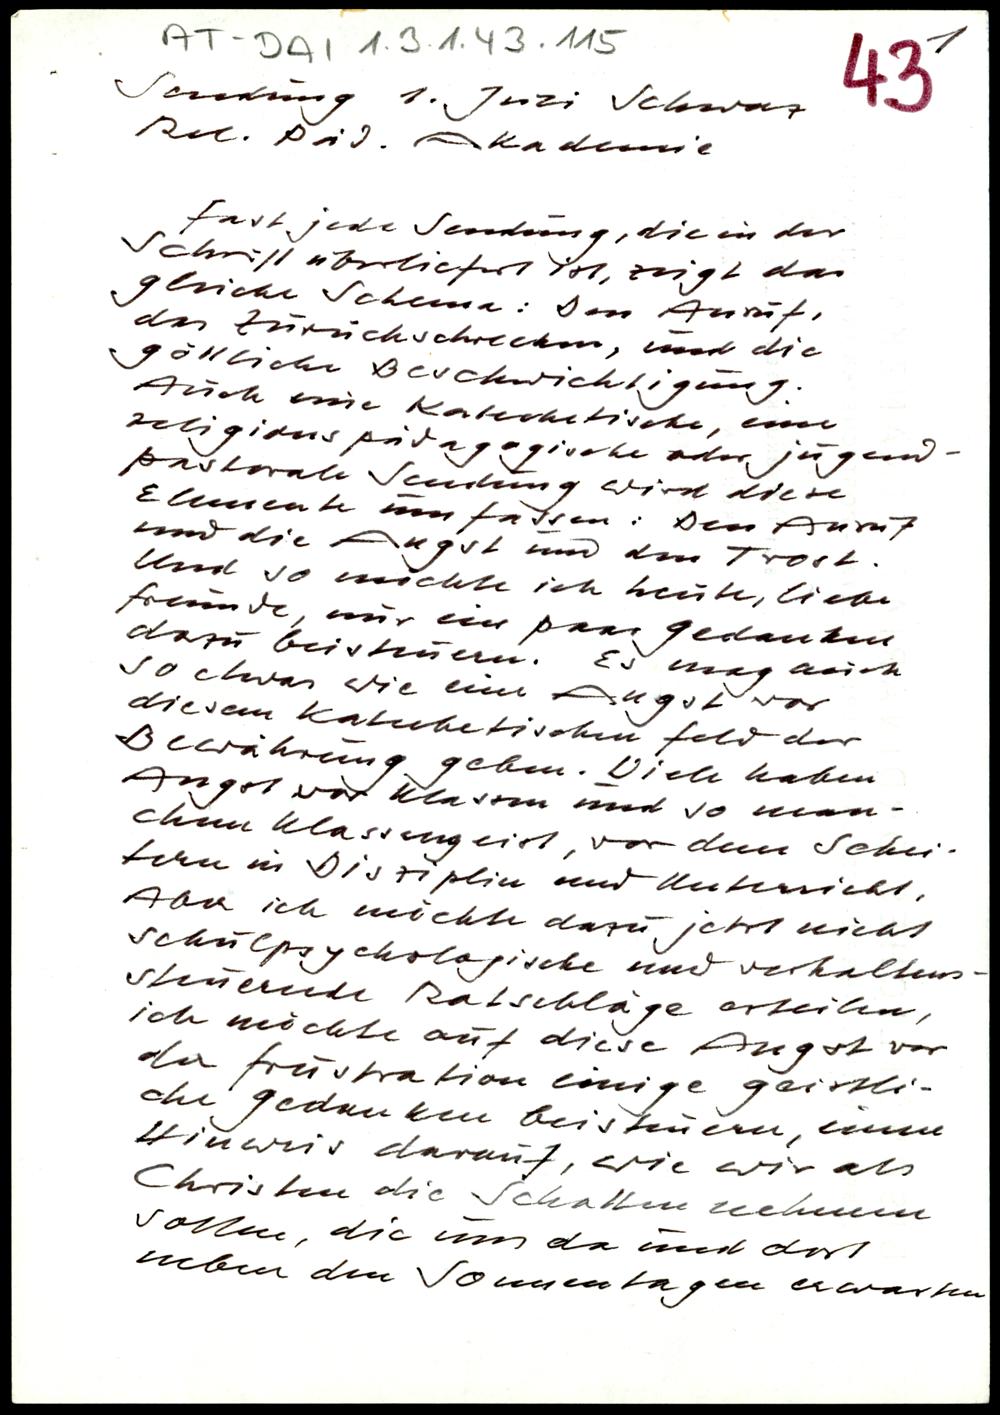 AT-DAI 1.3.1.43.115
43
1
Sendung 1. Juni Schwaz
Rel. Päd. Akademie
Fast jede Sendung, die in der
Schrift überliefert ist, zeigt das
gleiche Schema: Den Anruf,
das Zurückschrecken, und die
göttliche Beschwichtigung.
Auch eine Katechetische, eine
religionspädagogische oder jugend-
pastorale Sendung wird diese
Elemente umfassen: Den Anruf
und die Angst und den Trost.
Und so möchte ich heute, liebe
Freunde, nur ein paar Gedanken
dazu beisteuern. Es mag auch
so etwas wie eine Angst vor
diesem Katechetischen Feld der
Bewährung geben. Viele haben
Angst vor Klassen und so man-
chem Klassengeist, vor dem Schei-
tern in Disziplin und Unterricht.
Aber ich möchte dazu jetzt nicht
schulpsychologische und verhaltens-
steuernde Ratschläge erteilen,
ich möchte auf diese Angst vor
der Frustration einige geistli-
che Gedanken beisteuern, einen
Hinweis darauf, wie wir als
Christen die Schatten nehmen
sollen, die uns da und dort
neben den Sonnentagen erwarten